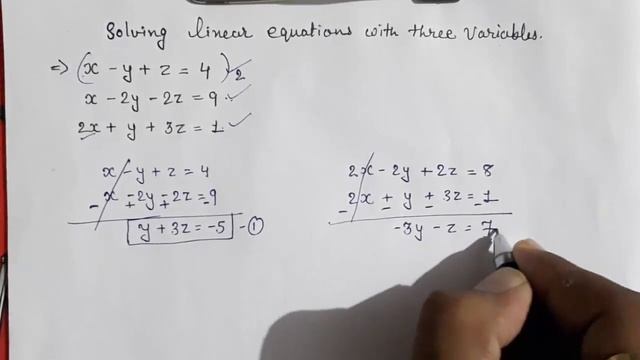 Solving linear equations with three variables.
=> (x - y + z = 4) 2
x - 2y - 2z = 9
2x + y + 3z = 1
x - y + z = 4
x - 2y - 2z = 9
- + + -
y + 3z = -5 - ①
2x - 2y + 2z = 8
2x + y + 3z = 1
- - - -
-3y - z = 7